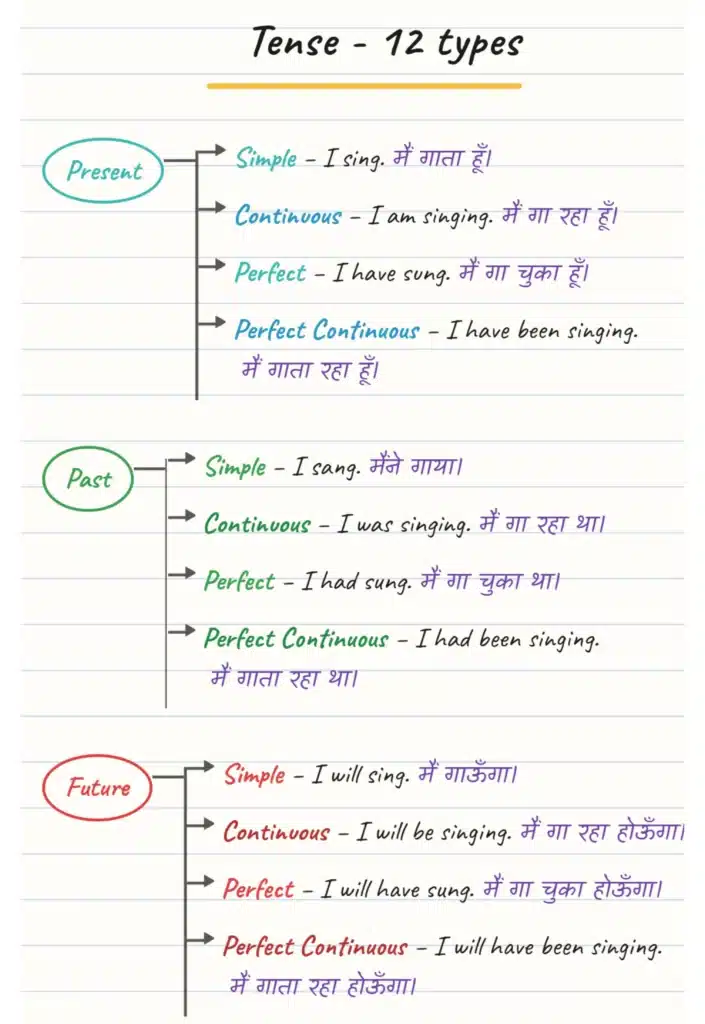 Tense - 12 types
Present
Simple – I sing. मैं गाता हूँ।
Continuous – I am singing. मैं गा रहा हूँ।
Perfect – I have sung. मैं गा चुका हूँ।
Perfect Continuous – I have been singing.
मैं गाता रहा हूँ।
Past
Simple – I sang. मैंने गाया।
Continuous – I was singing. मैं गा रहा था।
Perfect – I had sung. मैं गा चुका था।
Perfect Continuous – I had been singing.
मैं गाता रहा था।
Future
Simple – I will sing. मैं गाऊँगा।
Continuous – I will be singing. मैं गा रहा होऊँगा।
Perfect – I will have sung. मैं गा चुका होऊँगा।
Perfect Continuous – I will have been singing.
मैं गाता रहा होऊँगा।